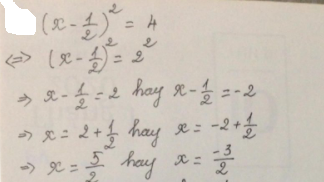 (x - 1/2)² = 4
<=> (x - 1/2)² = 2²
=> x - 1/2 = 2 hay x - 1/2 = -2
=> x = 2 + 1/2 hay x = -2 + 1/2
=> x = 5/2 hay x = -3/2